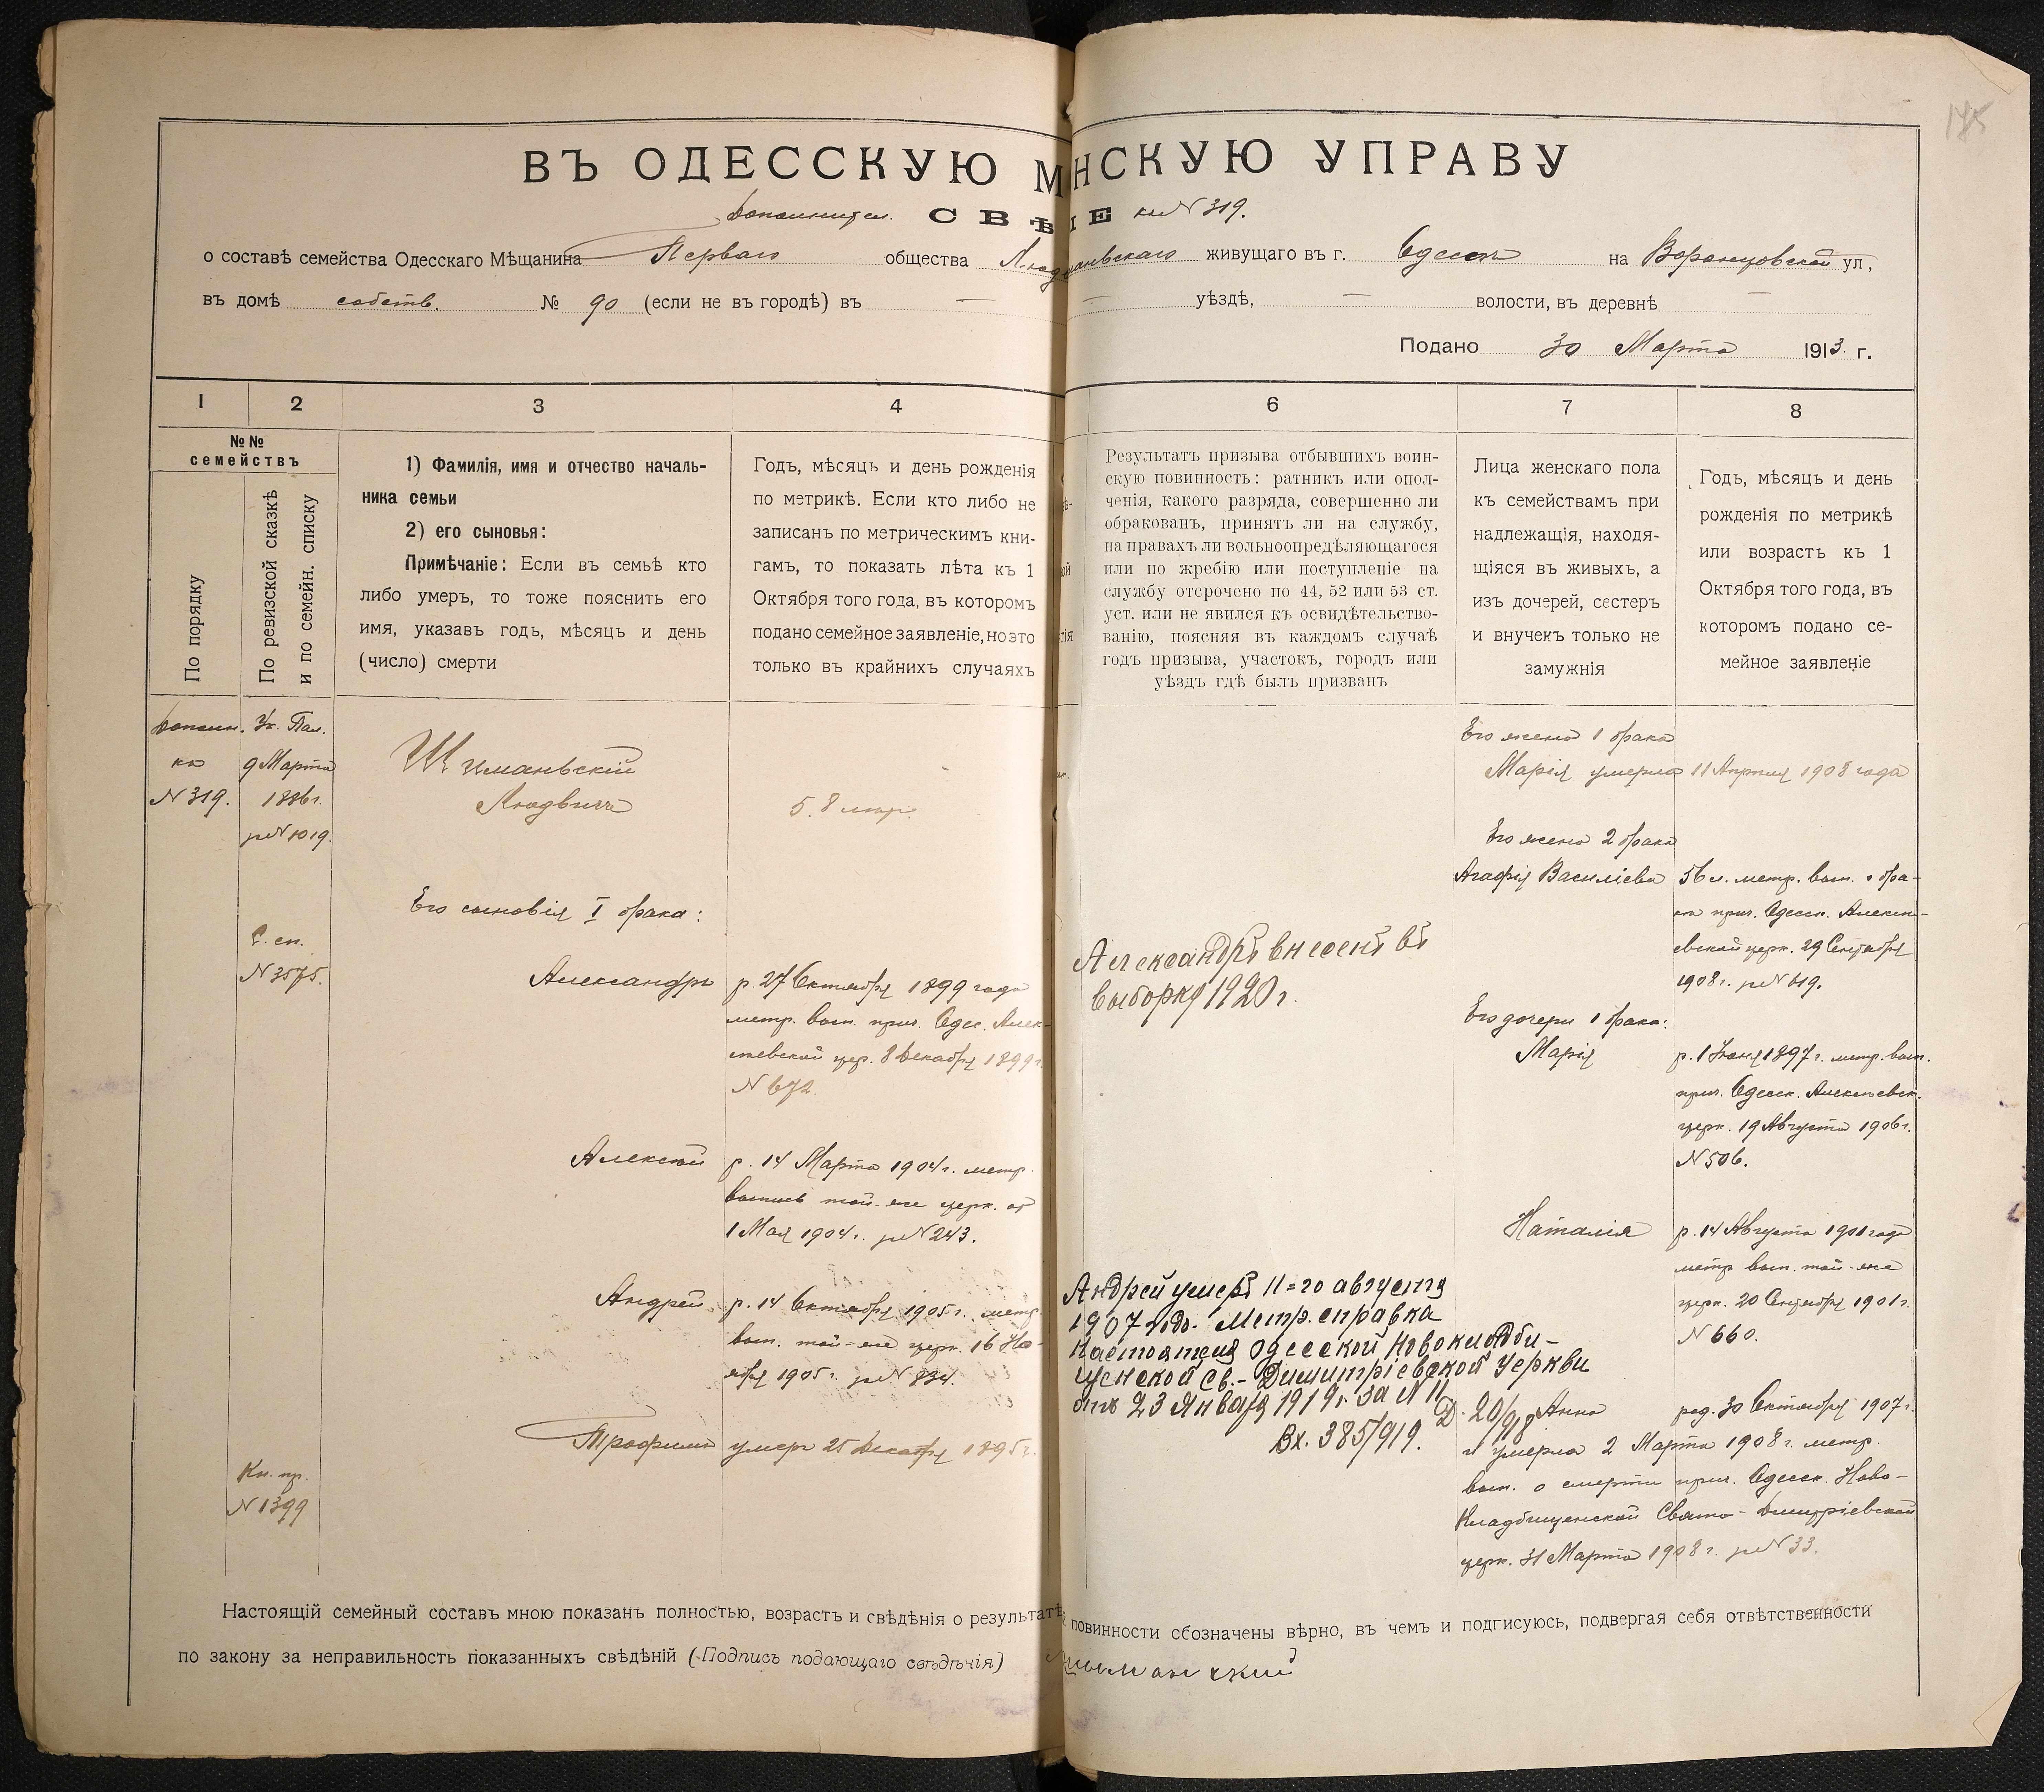 185
ВЪ ОДЕССКУЮ М НСКУЮ УПРАВУ
Дополнител. СВѢ ІЕ къ № 319.
о составѣ семейства Одесскаго Мѣщанина Перваго общества живущаго въ г. Одессѣ на Воронцовской ул,
въ домѣ собств. № 90 (если не въ городѣ) въ — — уѣздѣ, — волости, въ деревнѣ —
Подано 30 Марта 1913 г.
1 2 3 4
№№ семействъ
По порядку
По ревизской сказкѣ и по семейн. списку
1) Фамилія, имя и отчество началь-
ника семьи
2) его сыновья:
Примѣчаніе: Если въ семьѣ кто
либо умеръ, то тоже пояснить его
имя, указавъ годъ, мѣсяцъ и день
(число) смерти
Годъ, мѣсяцъ и день рожденія
по метрикѣ. Если кто либо не
записанъ по метрическимъ кни-
гамъ, то показать лѣта къ 1
Октября того года, въ которомъ
подано семейное заявленіе, но это
только въ крайнихъ случаяхъ
6 7 8
Результатъ призыва отбывшихъ воин-
скую повинность: ратникъ или опол-
ченія, какого разряда, совершенно ли
обракованъ, принятъ ли на службу,
на правахъ ли вольноопредѣляющагося
или по жребію или поступленіе на
службу отсрочено по 44, 52 или 53 ст.
уст. или не явился къ освидѣтельство-
ванію, поясняя въ каждомъ случаѣ
годъ призыва, участокъ, городъ или
уѣздъ гдѣ былъ призванъ
Лица женскаго пола
къ семействамъ при
надлежащія, находя-
щіяся въ живыхъ, а
изъ дочерей, сестеръ
и внучекъ только не
замужнія
Годъ, мѣсяцъ и день
рожденія по метрикѣ
или возрастъ къ 1
Октября того года, въ
которомъ подано се-
мейное заявленіе
Дополн.
къ
№ 319.
Ук. Пал.
9 Марта
1886 г.
за № 1019.
С. сп.
№ 3575.
Кн. пр.
№ 1399
Шимановскій
Людвигъ
58 лѣтъ
Его сыновія I брака:
Александръ р. 27 Октября 1899 года
метр. вып. прич. Одес. Алек-
сѣевской цер. 8 Декабря 1899 г.
№ 672.
Алексѣй р. 14 Марта 1904 г. метр.
выпись той-же церк. от
1 Мая 1904 г. за № 243.
Андрей р. 14 Октября 1905 г. метр.
вып. той-же церк. 16 Но-
ября 1905 г. за № 834.
Трофимъ умеръ 25 Декабря 1895 г.
Александръ внесенъ въ
выборку 1920 г.
Андрей умеръ 11=го августа
1907 года. Метр. справка
Настоятеля Одесской Новокладби-
щенской Св.-Димитріевской Церкви
отъ 23 Января 1919 г. за № 11
Вх. 385/919.
Его жена 1 брака
Марія умерла 11 Апрѣля 1908 года
Его жена 2 брака
Агафія Василіева 56 л. метр. вып. о бра-
кѣ прич. Одесск. Алексѣ-
евской церк. 29 Сентября
1908 г. за № 619.
Его дочери 1 брака:
Марія р. 1 1897 г. метр. вып.
прич. Одесск. Алексѣевск.
церк. 19 Августа 1906 г.
№ 506.
Наталія р. 14 Августа 1901 года
метр вып. той-же
церк. 20 Сентября 1901 г.
№ 660.
Анна род. 30 Октября 1907 г.
и умерла 2 Марта 1908 г. метр.
вып. о смерти прич. Одесск. Ново-
Кладбищенской Свято-Димитріевской
церк. 31 Марта 1908 г. за № 33.
Настоящій семейный составъ мною показанъ полностью, возрастъ и свѣдѣнія о результатѣ повинности сбозначены вѣрно, въ чемъ и подгисуюсь, подвергая себя отвѣтственности
по закону за неправильность показанныхъ свѣдѣній (Подпись подающаго свѣдѣнія)